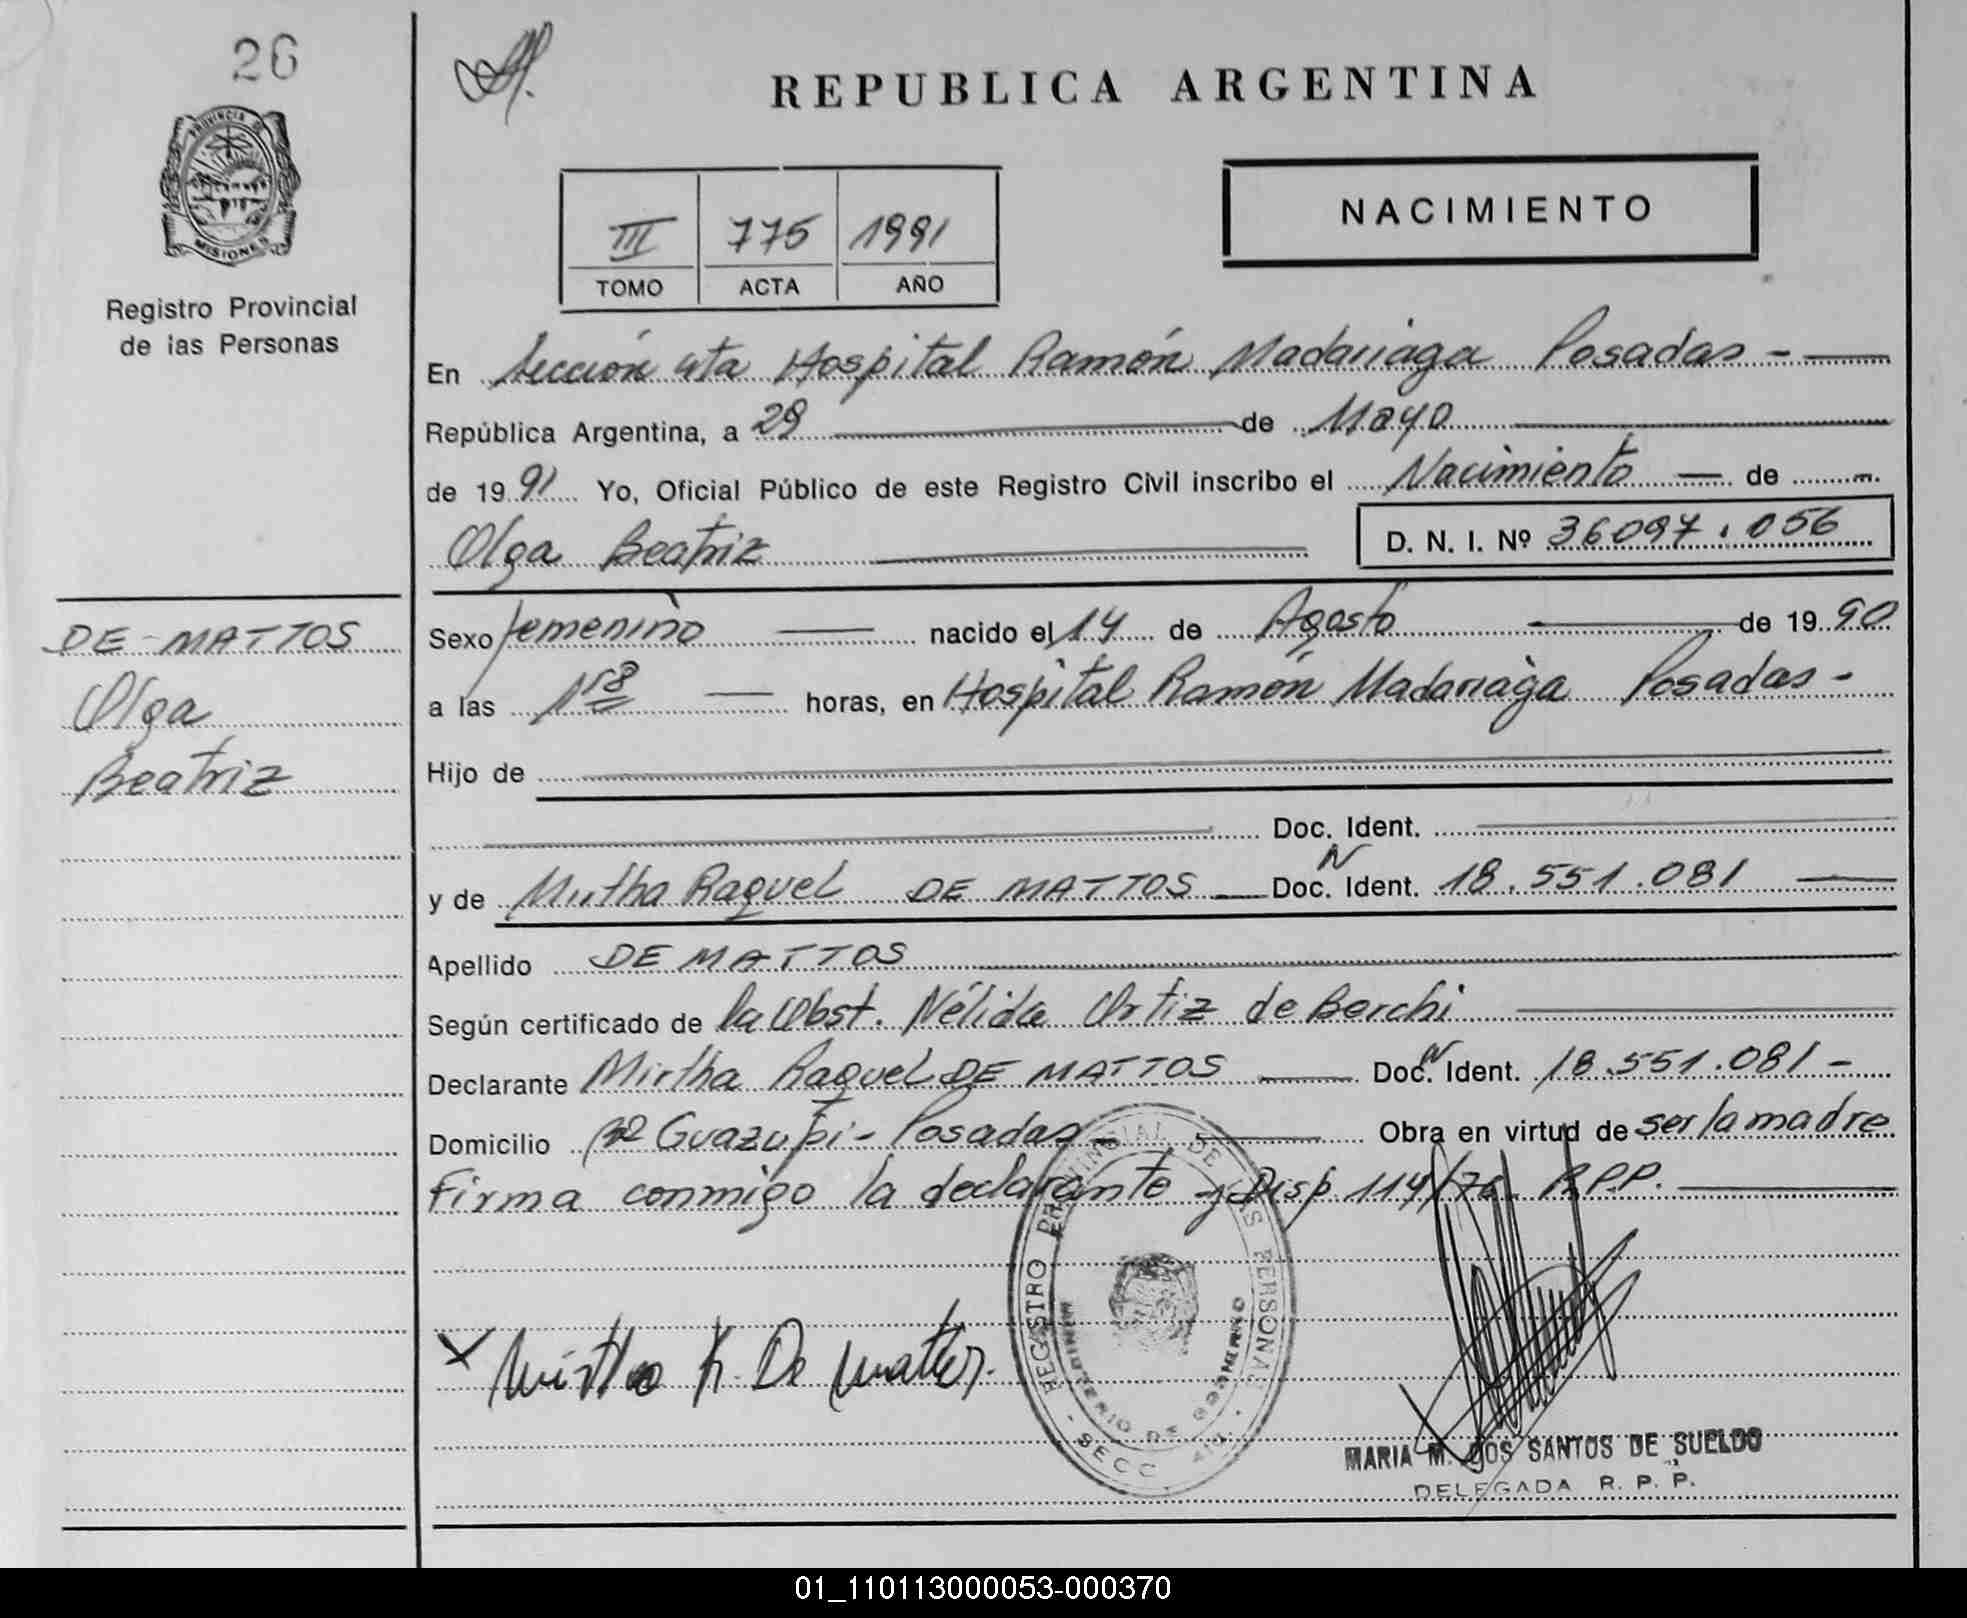 26
PROVINCIA DE
MISIONES
Registro Provincial
de las Personas
DE MATTOS
Olga
Beatriz
REPUBLICA ARGENTINA
III 775 1991
TOMO ACTA AÑO
NACIMIENTO
En Sección 4ta Hospital Ramón Madariaga Posadas -
República Argentina, a 29 de Mayo
de 1991 Yo, Oficial Público de este Registro Civil inscribo el Nacimiento de
Olga Beatriz D. N. I. Nº 36097.056
Sexo femenino nacido el 14 de Agosto de 1990
a las 1 58 horas, en Hospital Ramón Madariaga Posadas -
Hijo de
Doc. Ident.
y de Mirtha Raquel DE MATTOS Doc. N Ident. 18.551.081
Apellido DE MATTOS
Según certificado de la Obst. Nélida Ortiz de Borchi
Declarante Mirtha Raquel DE MATTOS Doc. N Ident. 18.551.081 -
Domicilio Guazupi - Posadas - Obra en virtud de ser la madre
Firma conmigo la declarante y Disp 114/76 R.P.P.
REGISTRO PROVINCIAL DE LAS PERSONAS
MINISTERIO DE GOBIERNO
SECC. 4ta
X Mirtha R. De Mattos.
MARIA M. DOS SANTOS DE SUELDO
DELEGADA R. P. P.
01_110113000053-000370